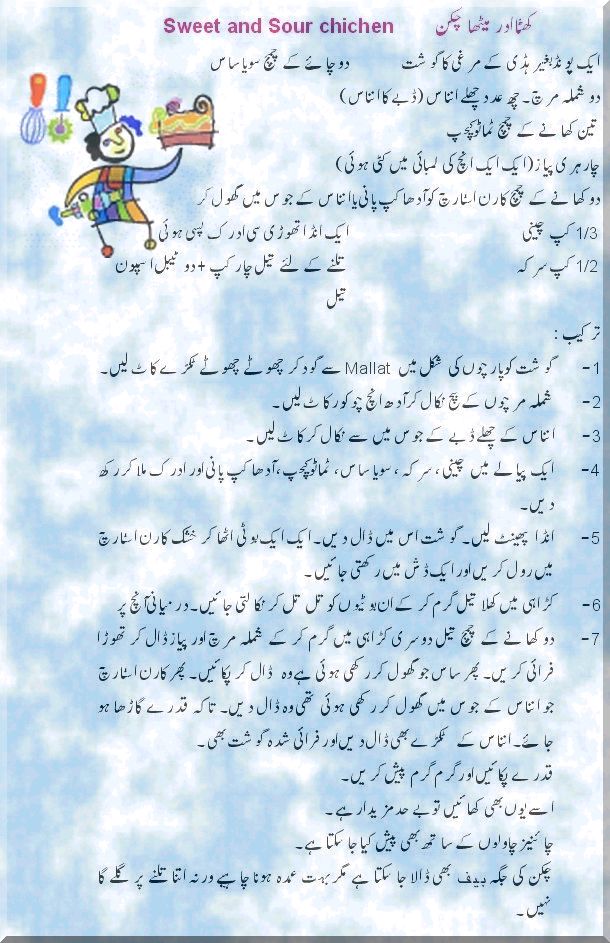 کھٹا اور میٹھا چکن Sweet and Sour chichen
ایک پونڈ بغیر ہڈی کے مرغی کا گوشت دو چائے کے چمچ سویا ساس
دو شملہ مرچ۔ چھ عدد چھلے انناس (ڈبے کا انناس)
تین کھانے کے چمچ ٹماٹو کیچپ
چار ہری پیاز (ایک ایک انچ کی لمبائی میں کٹی ہوئی)
دو کھانے کے چمچ کارن اسٹارچ کو آدھا کپ پانی یا انناس کے جوس میں گھول کر
1/3 کپ چینی ایک انڈا تھوڑی سی ادرک پسی ہوئی
1/2 کپ سرکہ تلنے کے لئے تیل چار کپ + دو ٹیبل اسپون
تیل
ترکیب :
1- گوشت کو پارچوں کی شکل میں Mallat سے گود کر چھوٹے چھوٹے ٹکڑے کاٹ لیں۔
2- شملہ مرچوں کے بیج نکال کر آدھ انچ چوکور کاٹ لیں۔
3- انناس کے چھلے ڈبے کے جوس میں سے نکال کر کاٹ لیں۔
4- ایک پیالے میں چینی، سرکہ، سویا ساس، ٹماٹو کیچپ، آدھا کپ پانی اور ادرک ملا کر رکھ
دیں۔
5- انڈا پھینٹ لیں۔ گوشت اس میں ڈال دیں۔ ایک ایک بوٹی اٹھا کر خشک کارن اسٹارچ
میں رول کریں اور ایک ڈش میں رکھتی جائیں۔
6- کڑاہی میں کھلا تیل گرم کر کے ان بوٹیوں کو تل تل کر نکالتی جائیں۔ درمیانی آنچ پر
7- دو کھانے کے چمچ تیل دوسری کڑاہی میں گرم کر کے شملہ مرچ اور پیاز ڈال کر تھوڑا
فرائی کریں۔ پھر ساس جو گھول کر رکھی ہوئی ہے وہ ڈال کر پکائیں۔ پھر کارن اسٹارچ
جو انناس کے جوس میں گھول کر رکھی ہوئی تھی وہ ڈال دیں۔ تاکہ قدرے گاڑھا ہو
جائے۔ انناس کے ٹکڑے بھی ڈال دیں اور فرائی شدہ گوشت بھی۔
قدرے پکائیں اور گرم گرم پیش کریں۔
اسے یوں بھی کھائیں تو بے حد مزیدار ہے۔
چائنیز چاولوں کے ساتھ بھی پیش کیا جا سکتا ہے۔
چکن کی جگہ بیف بھی ڈالا جا سکتا ہے مگر بہت عمدہ ہونا چاہیے ورنہ اتنا تلنے پر گلے گا
نہیں۔